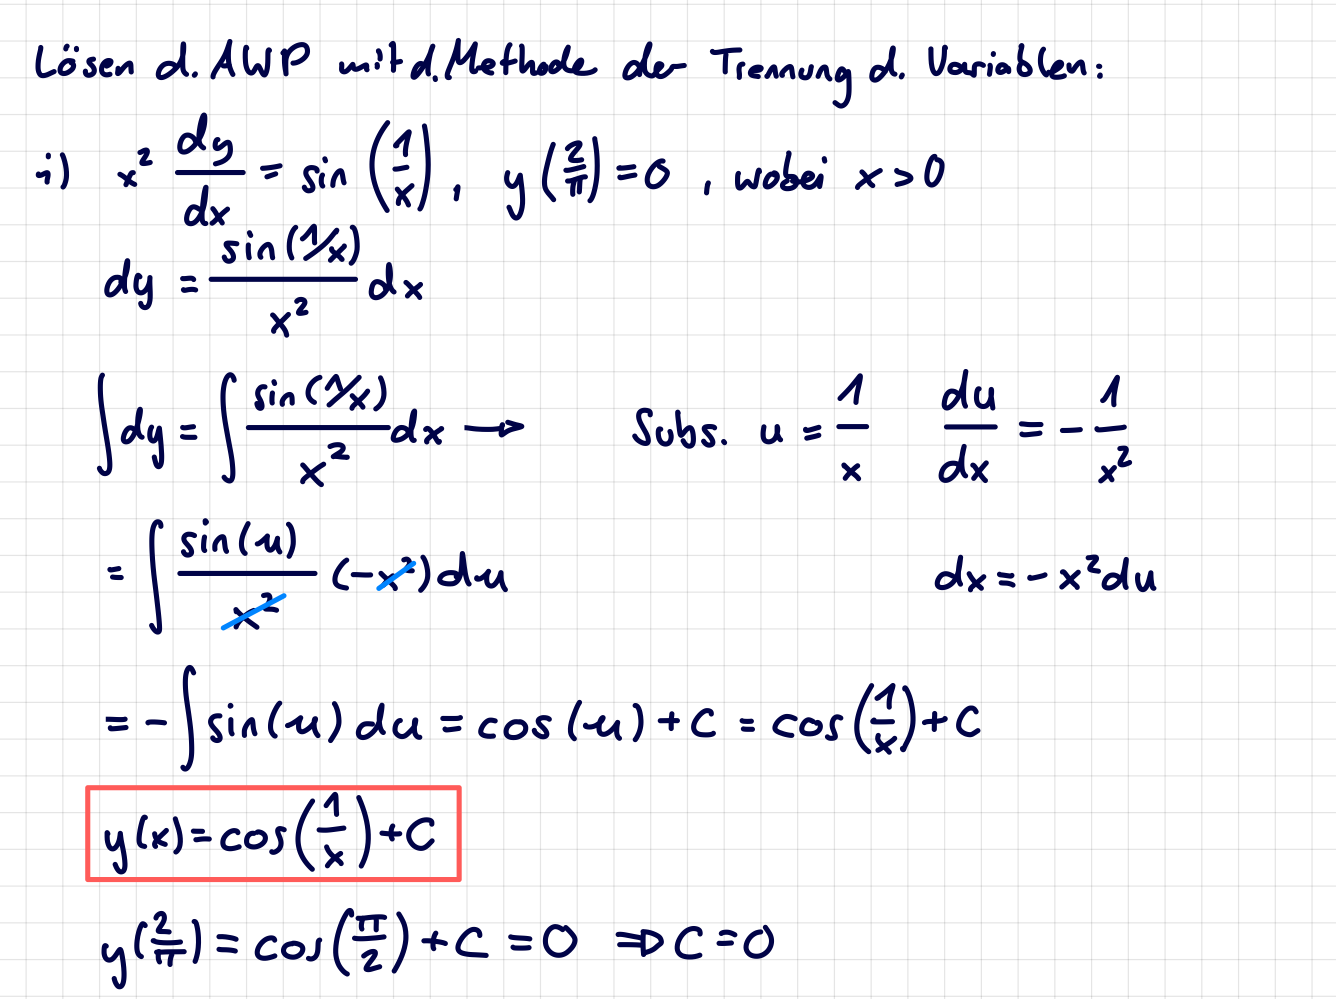 Lösen d. AWP mit d. Methode der Trennung d. Variablen:
i) x² dy/dx = sin(1/x), y(2/π) = 0, wobei x > 0
dy = sin(1/x)/x² dx
∫dy = ∫ sin(1/x)/x² dx → Subs. u = 1/x du/dx = -1/x²
= ∫ sin(u)/x² (-x²) du dx = -x² du
= -∫ sin(u) du = cos(u) + C = cos(1/x) + C
y(x) = cos(1/x) + C
y(2/π) = cos(π/2) + C = 0 ⇒ C = 0